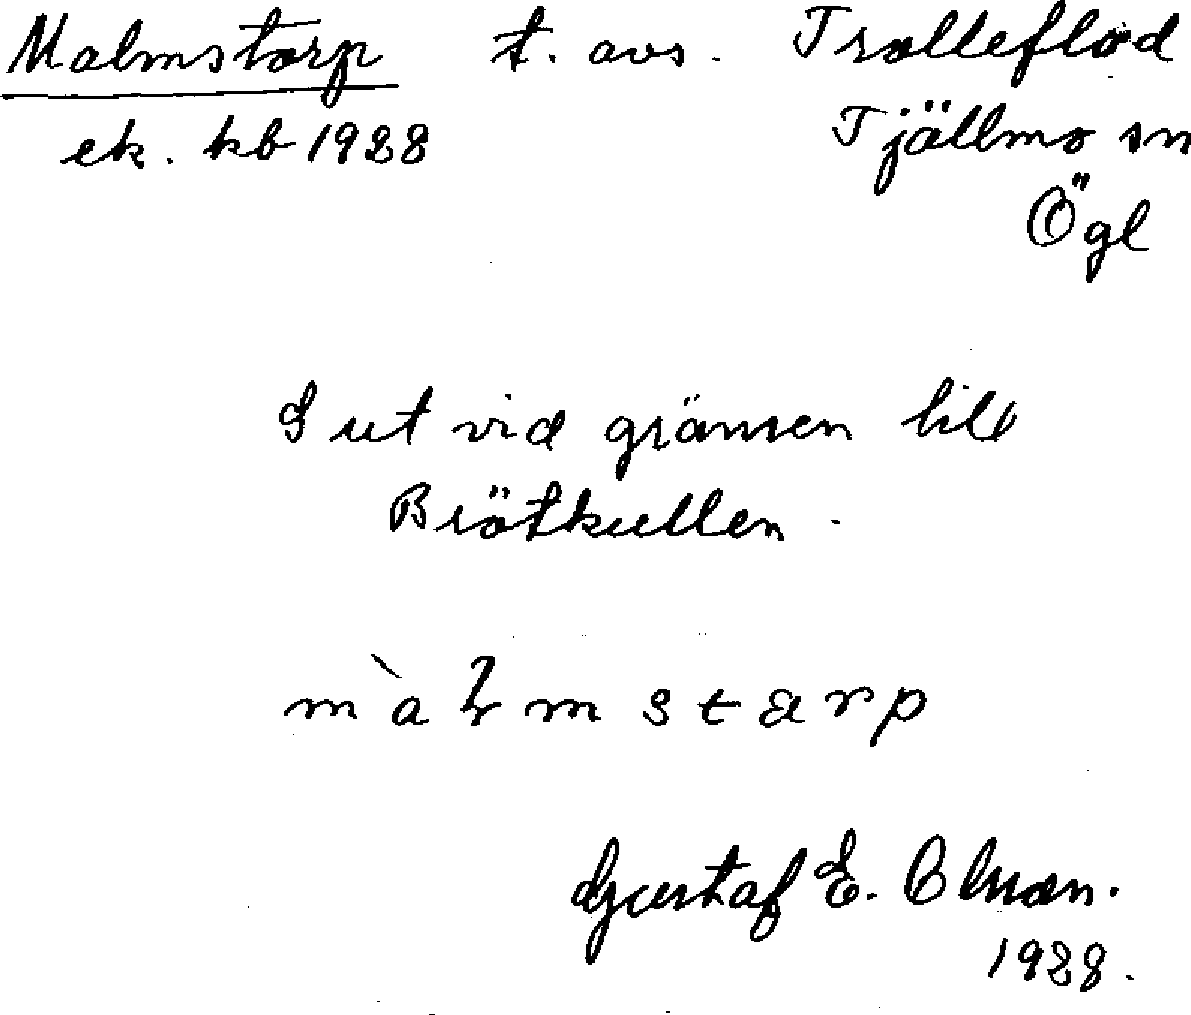 Malmstorp t. avs. Trolleflod
ek. kb 1928 Tjällmo sn
Ögl
S ut vid gränsen till
Brötkullen.
màɫmstarp
Gustaf E. Olsson.
1928.